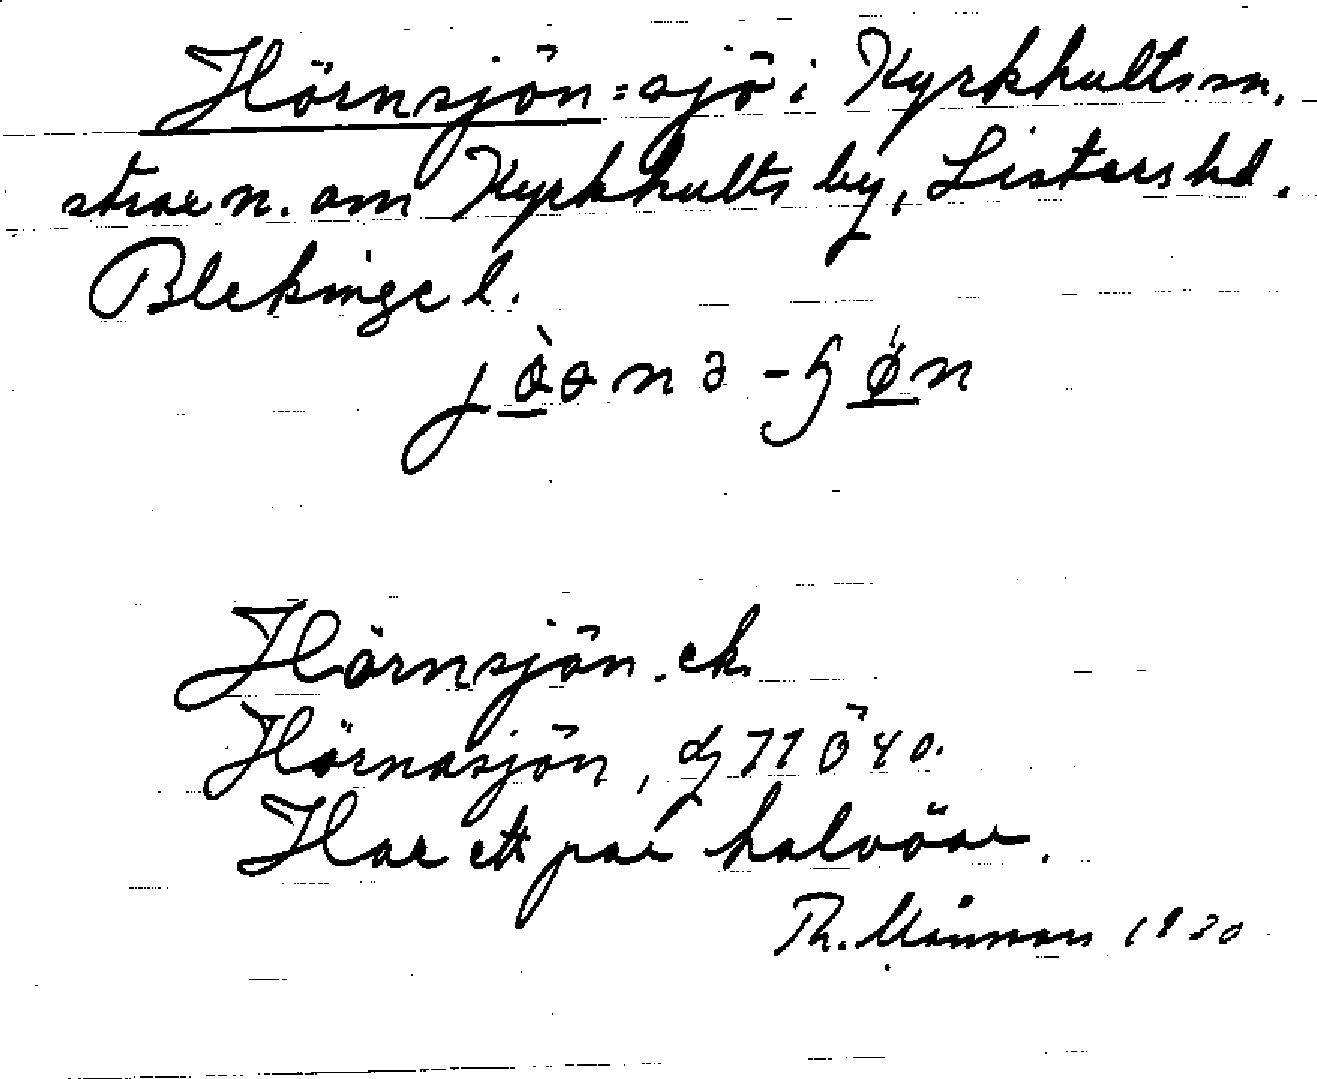 Hörnsjön = sjö i Kyrkhults sn.
strax n. om Kyrkhults by, Listers hd.
Blekinge l.
Hörnsjön. ek.
Hörnasjön, dj 71 Ö 40.
Har ett par halvöar.
Th. 1930